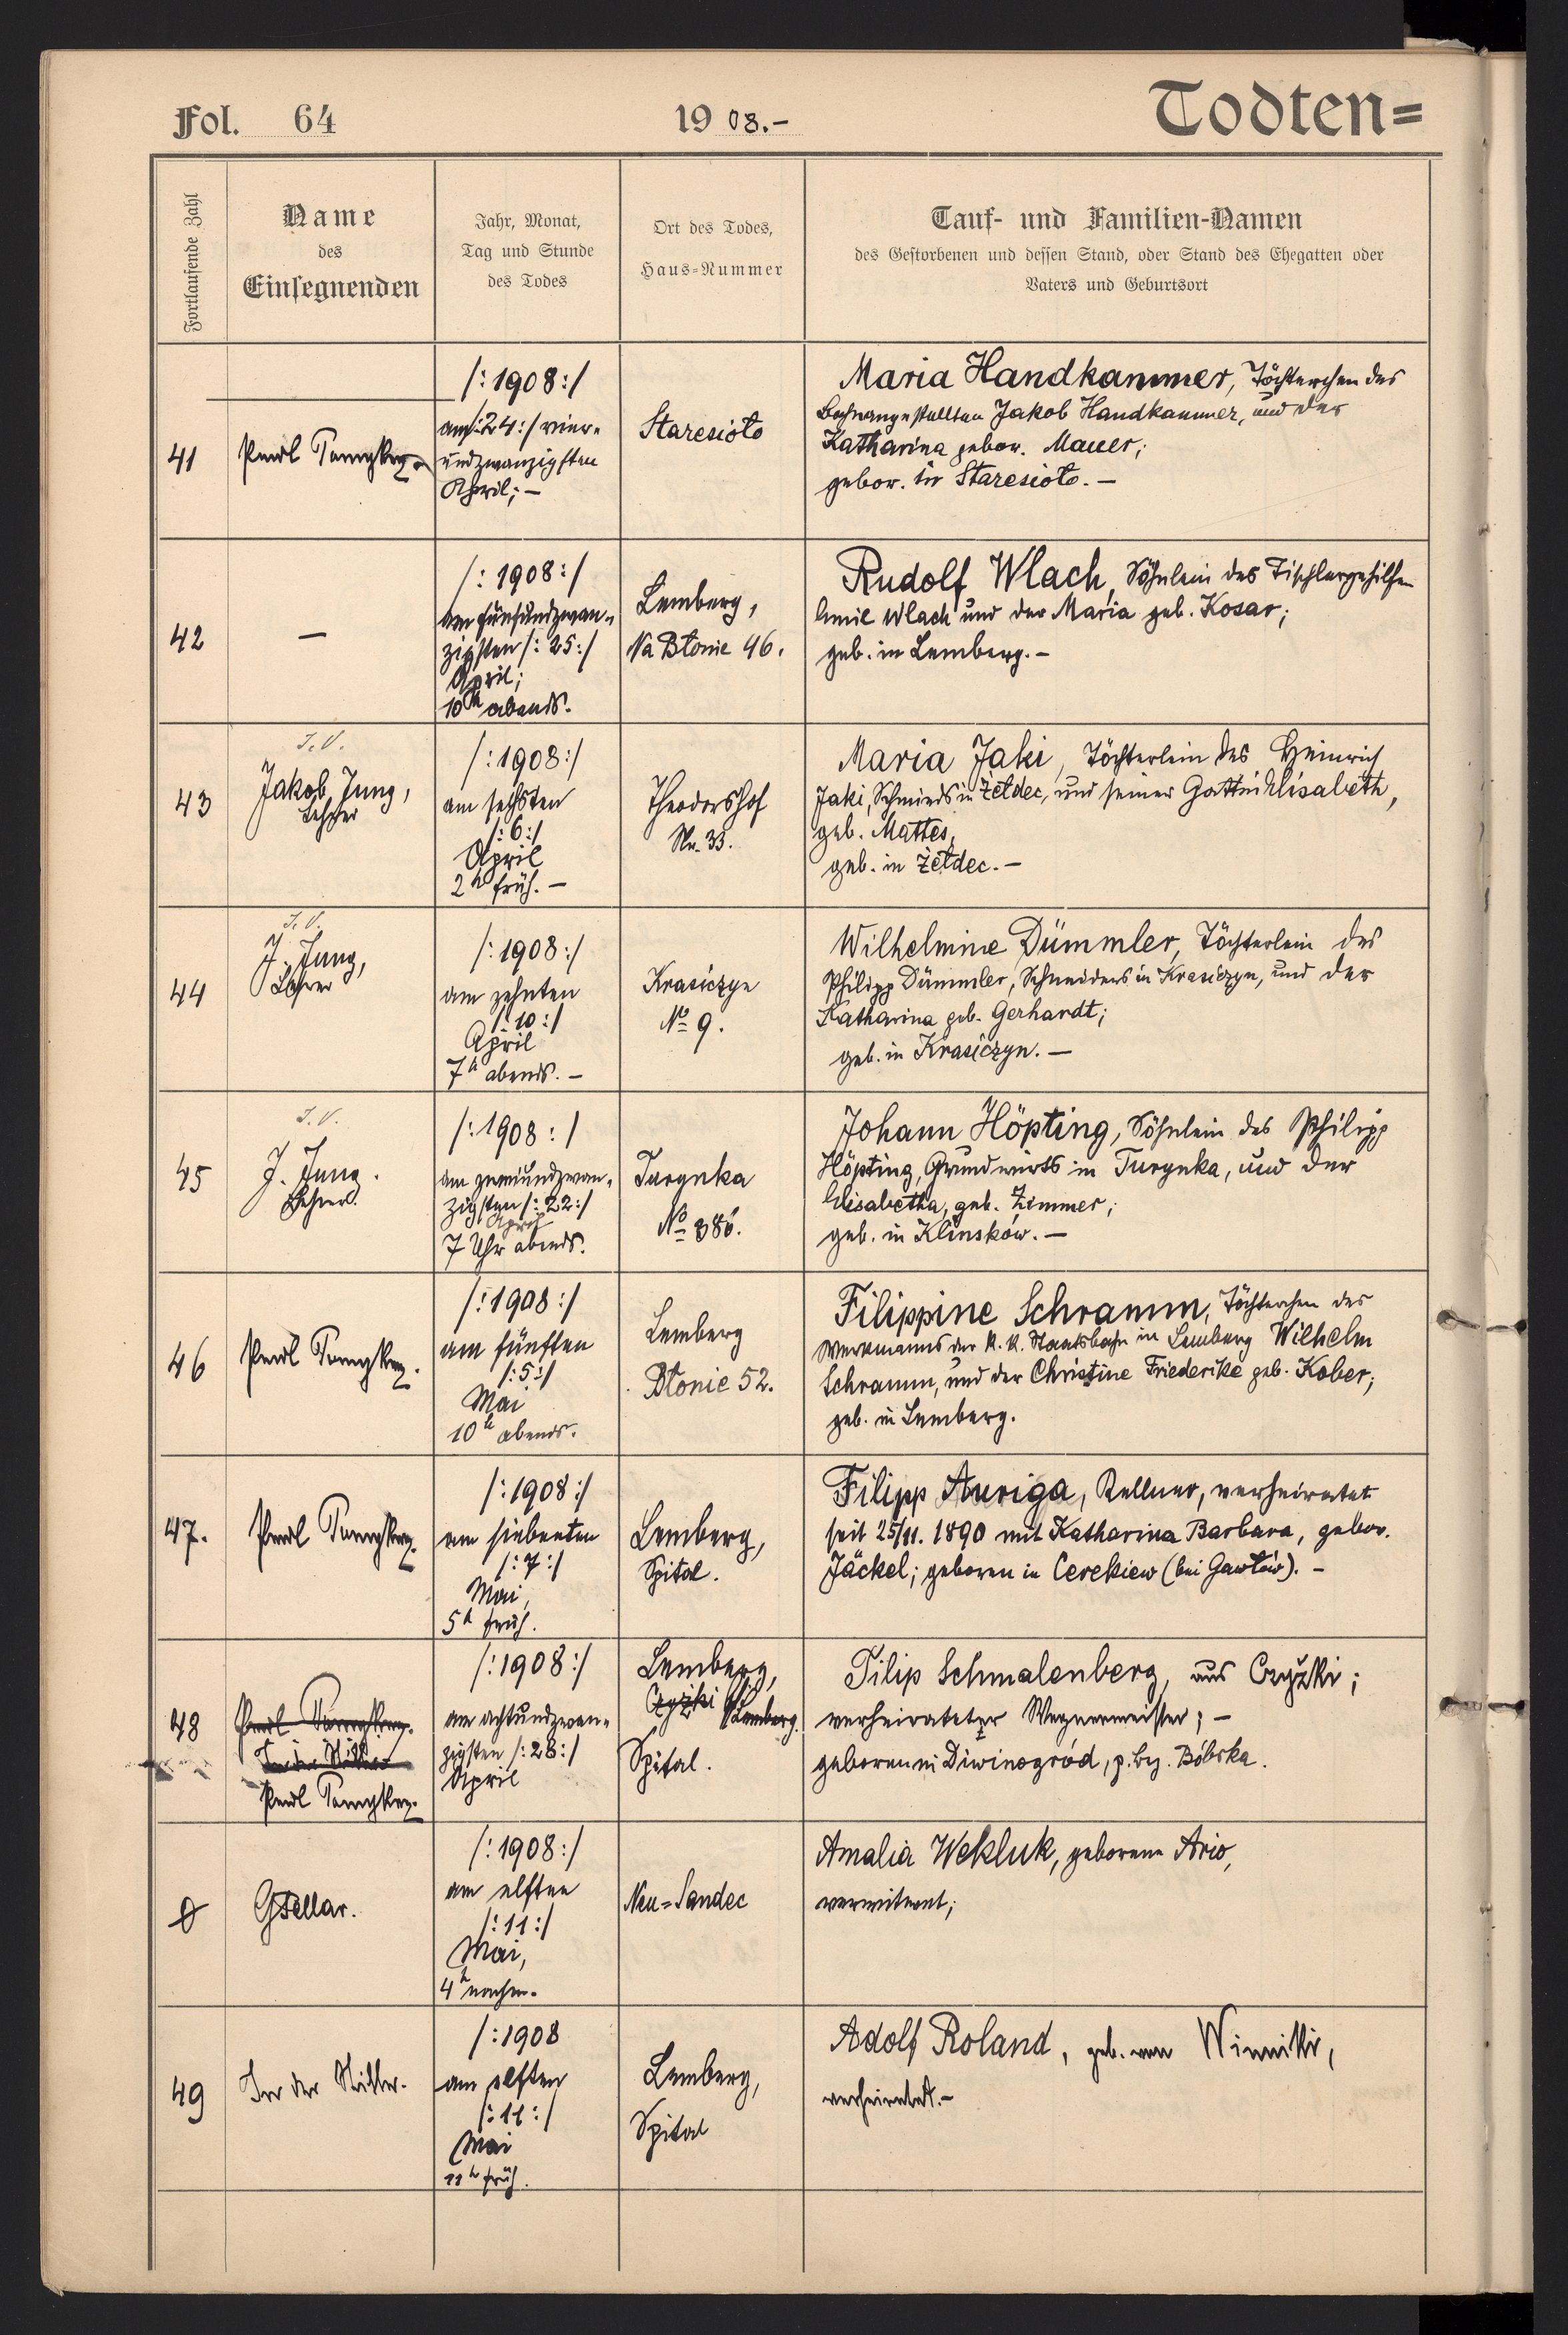 Fol. 64
19 08.-
Todten=
Fortlaufende Zahl
Name
des
Einsegnenden
Jahr, Monat,
Tag und Stunde
des Todes
Ort des Todes,
Haus=Nummer
Tauf- und Familien-Namen
des Gestorbenen und dessen Stand, oder Stand des Ehegatten oder
Vaters und Geburtsort
41
/:1908:/
am/:24:/ vier-
undzwanzigsten
April; —
Staresioło
Maria Handkammer, Töchterchen des
Bahnangestellten Jakob Handkammer, und der
Katharina gebor. Mauer;
gebor. in Staresioło. —
42
—
/:1908:/
am fünfundzwan-
zigsten /:25:/
April;
10h abends.
Lemberg,
Na Błonie 46.
Rudolf Wlach, Söhnlein des Tischlergehilfen
Emil Wlach und der Maria geb. Kosar;
geb. in Lemberg. —
43
I.V.
Jakob Jung,
Lehrer
/:1908:/
am sechsten
/:6:/
April
2h früh. —
Theodorshof
Nr. 33.
Maria Jaki, Töchterlein des Heinrich
Jaki, Schmieds in Żełdec, und seiner Gattin Elisabeth,
geb. Mattes,
geb. in Żełdec. —
44
I.V.
J. Jung,
Lehrer
/:1908:/
am zehnten
/:10:/
April
7h abends. —
Krasiczyn
No 9.
Wilhelmine Dümmler, Töchterlein des
Philipp Dümmler, Schneiders in Krasiczyn, und der
Katharina geb. Gerhardt;
geb. in Krasiczyn. —
45
I.V.
J. Jung.
Lehrer.
/:1908:/
am zweiundzwan-
zigsten /:22:/
April
7 Uhr abends.
Turynka
No 386.
Johann Höpting, Söhnlein des Philipp
Höpting, Grundwirts in Turynka, und der
Elisabetha, geb. Zimmer;
geb. in Klinsków. —
46
/:1908:/
am fünften
/:5:/
Mai
10h abends.
Lemberg
Błonie 52.
Filippine Schramm, Töchterchen des
Werkmanns der k. k. Staatsbahn in Lemberg Wilhelm
Schramm, und der Christine Friederike geb. Kober;
geb. in Lemberg.
47.
/:1908:/
am siebenten
/:7:/
Mai,
5h früh.
Lemberg,
Spital.
Filipp Auriga, Kellner, verheiratet
seit 25/11. 1890 mit Katharina Barbara, gebor.
Jäckel; geboren in Cerekiew (bei Gawłów). —
48
/:1908:/
am achtundzwan-
zigsten /:28:/
April
Lemberg,
Czyżki Lemberg.
Spital.
Filip Schmalenberg, aus Czyżki;
verheirateter Wagnermeister; —
geboren in Diwinogród, p. Bez. Bóbrka.
0
Gsellar.
/:1908:/
am elften
/:11:/
Mai,
4h nachm.
Neu=Sandec
Amalia Wekluk, geborene Ario,
verwitwet;
49
/:1908
am elften
/:11:/
Mai
11h früh.
Lemberg,
Spital
Adolf Roland, geb. von Winniki,
verheiratet. —